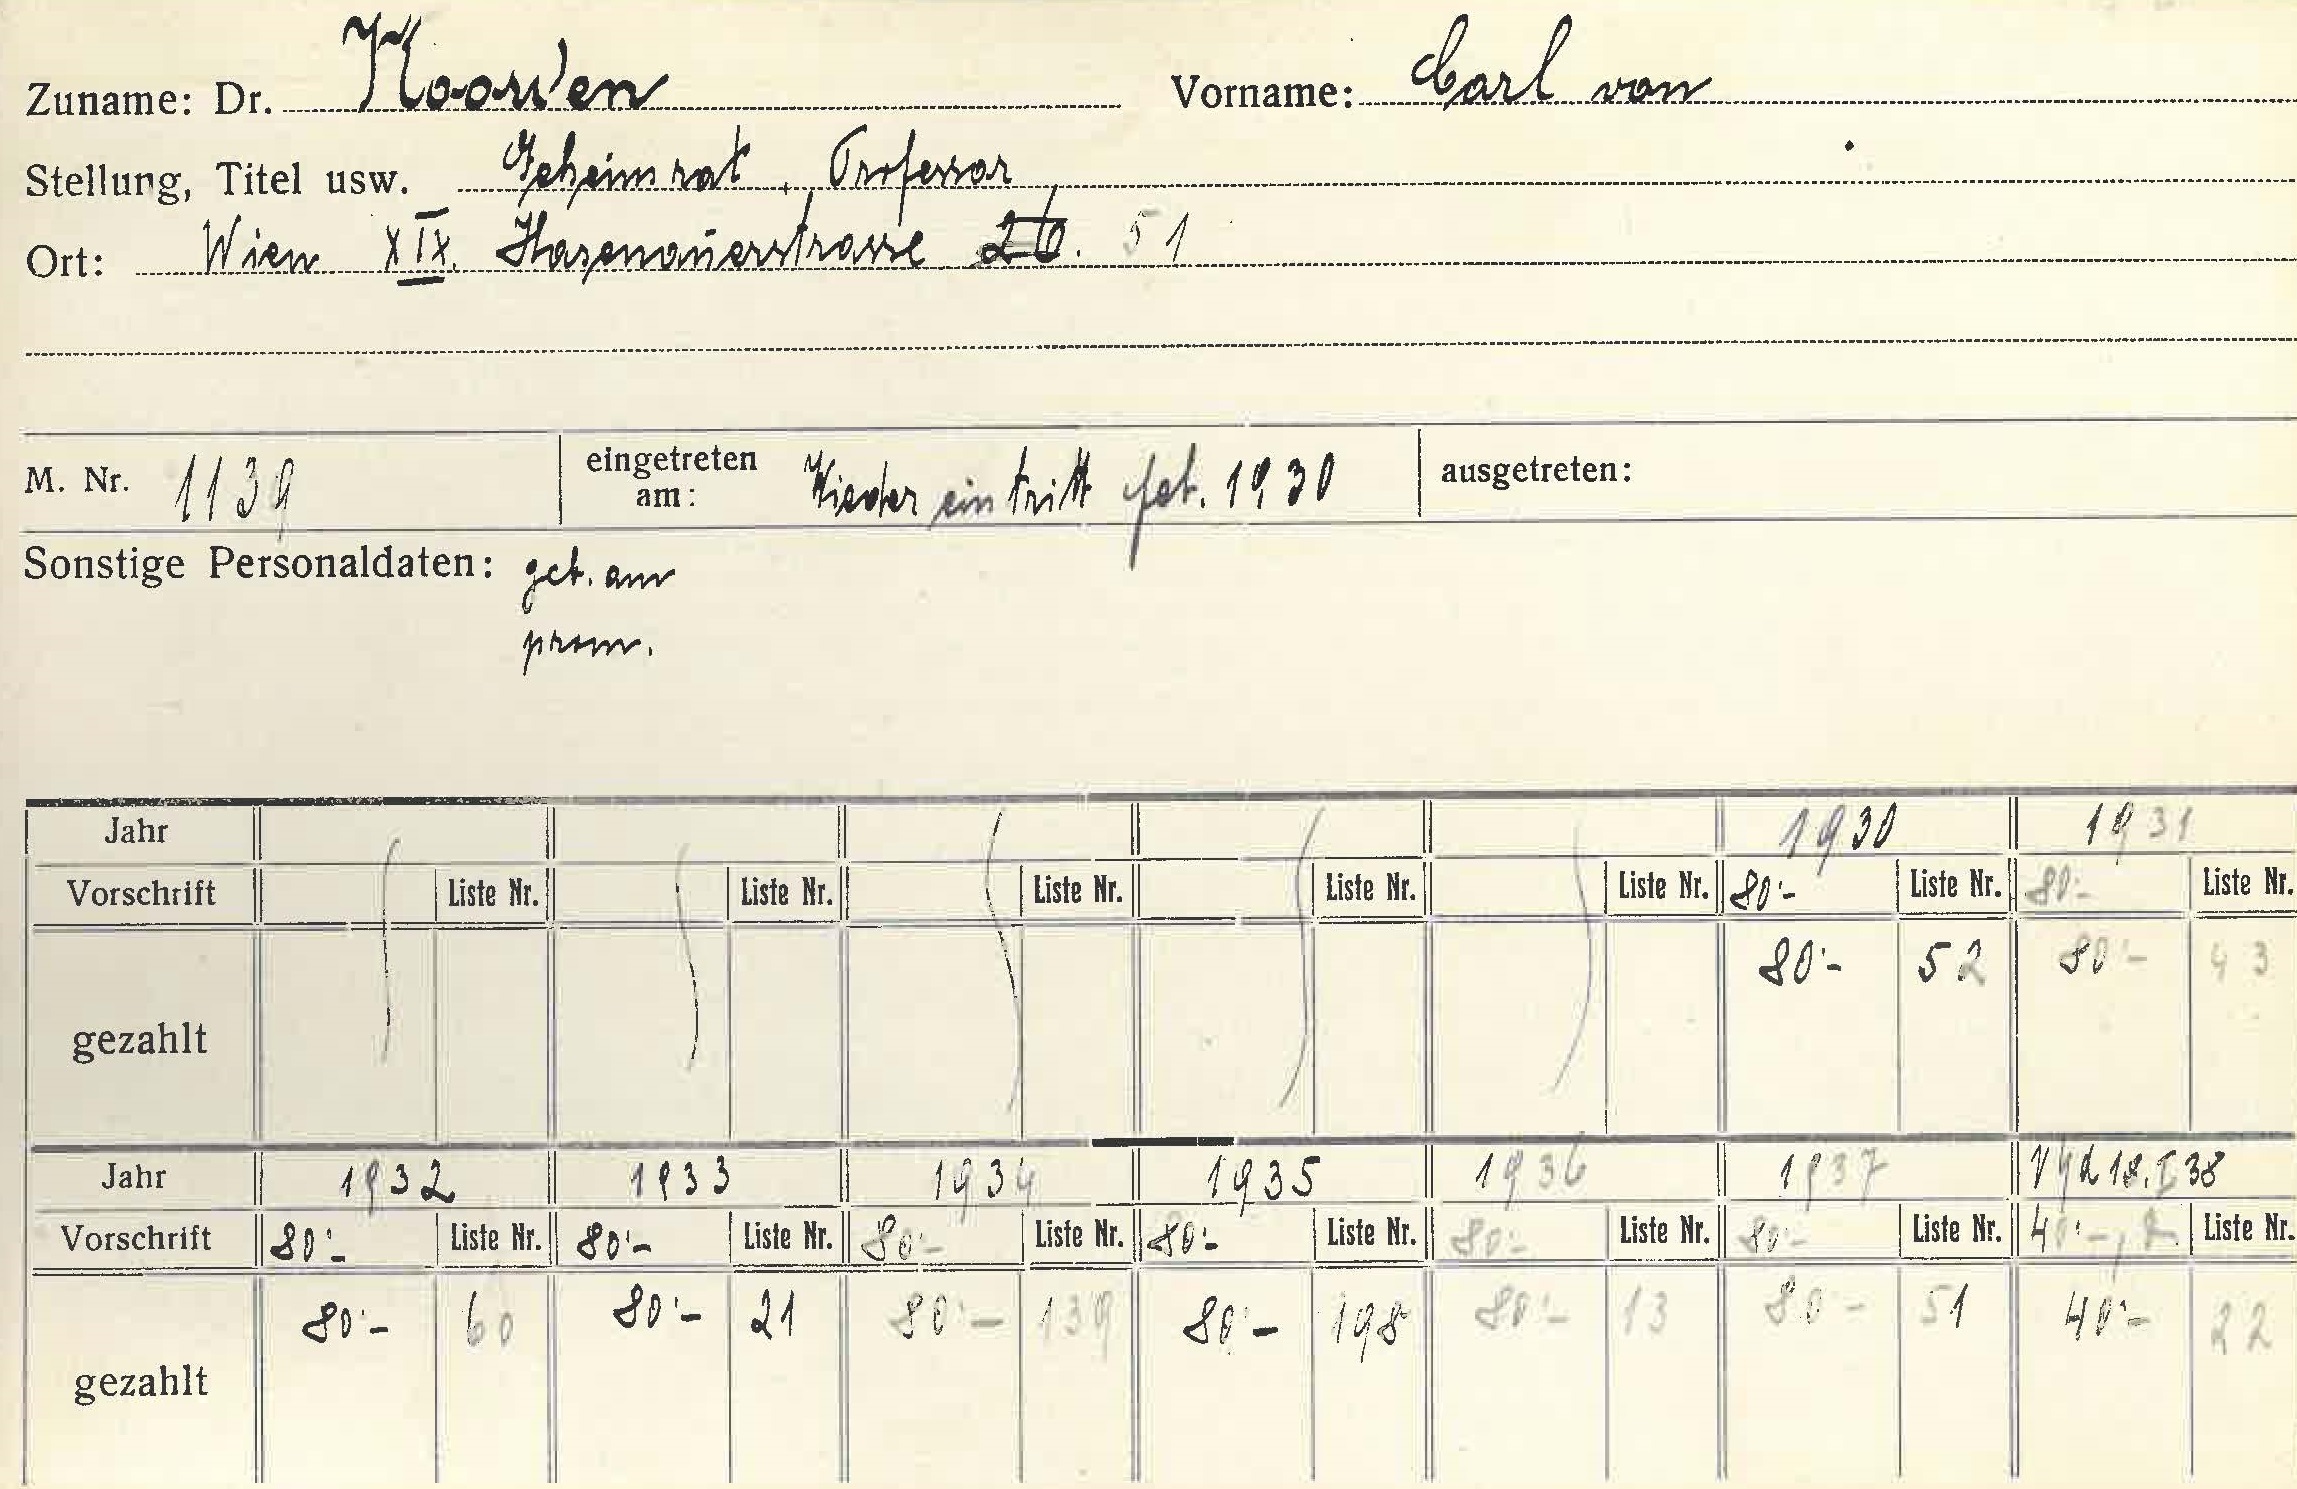 Zuname: Dr. Noorden Vorname: Carl von
Stellung, Titel usw. Geheimrat, Professor
Ort: Wien XIX. Hasenauerstrasse 26. 51
M. Nr. 1139 eingetreten am: Wiedereintritt feb. 1930 ausgetreten:
Sonstige Personaldaten: geb. am
prom.
Jahr 1930 1931
Vorschrift Liste Nr. Liste Nr. Liste Nr. Liste Nr. Liste Nr. 80'- Liste Nr. 80'- Liste Nr.
gezahlt 80'- 52 80'- 43
Jahr 1932 1933 1934 1935 1936 1937 18. I 38
Vorschrift 80'- Liste Nr. 80'- Liste Nr. 80'- Liste Nr. 80'- Liste Nr. 80'- Liste Nr. 80'- Liste Nr. 40'- Liste Nr.
gezahlt 80'- 60 80'- 21 80'- 139 80'- 198 80'- 13 80'- 51 40'- 22